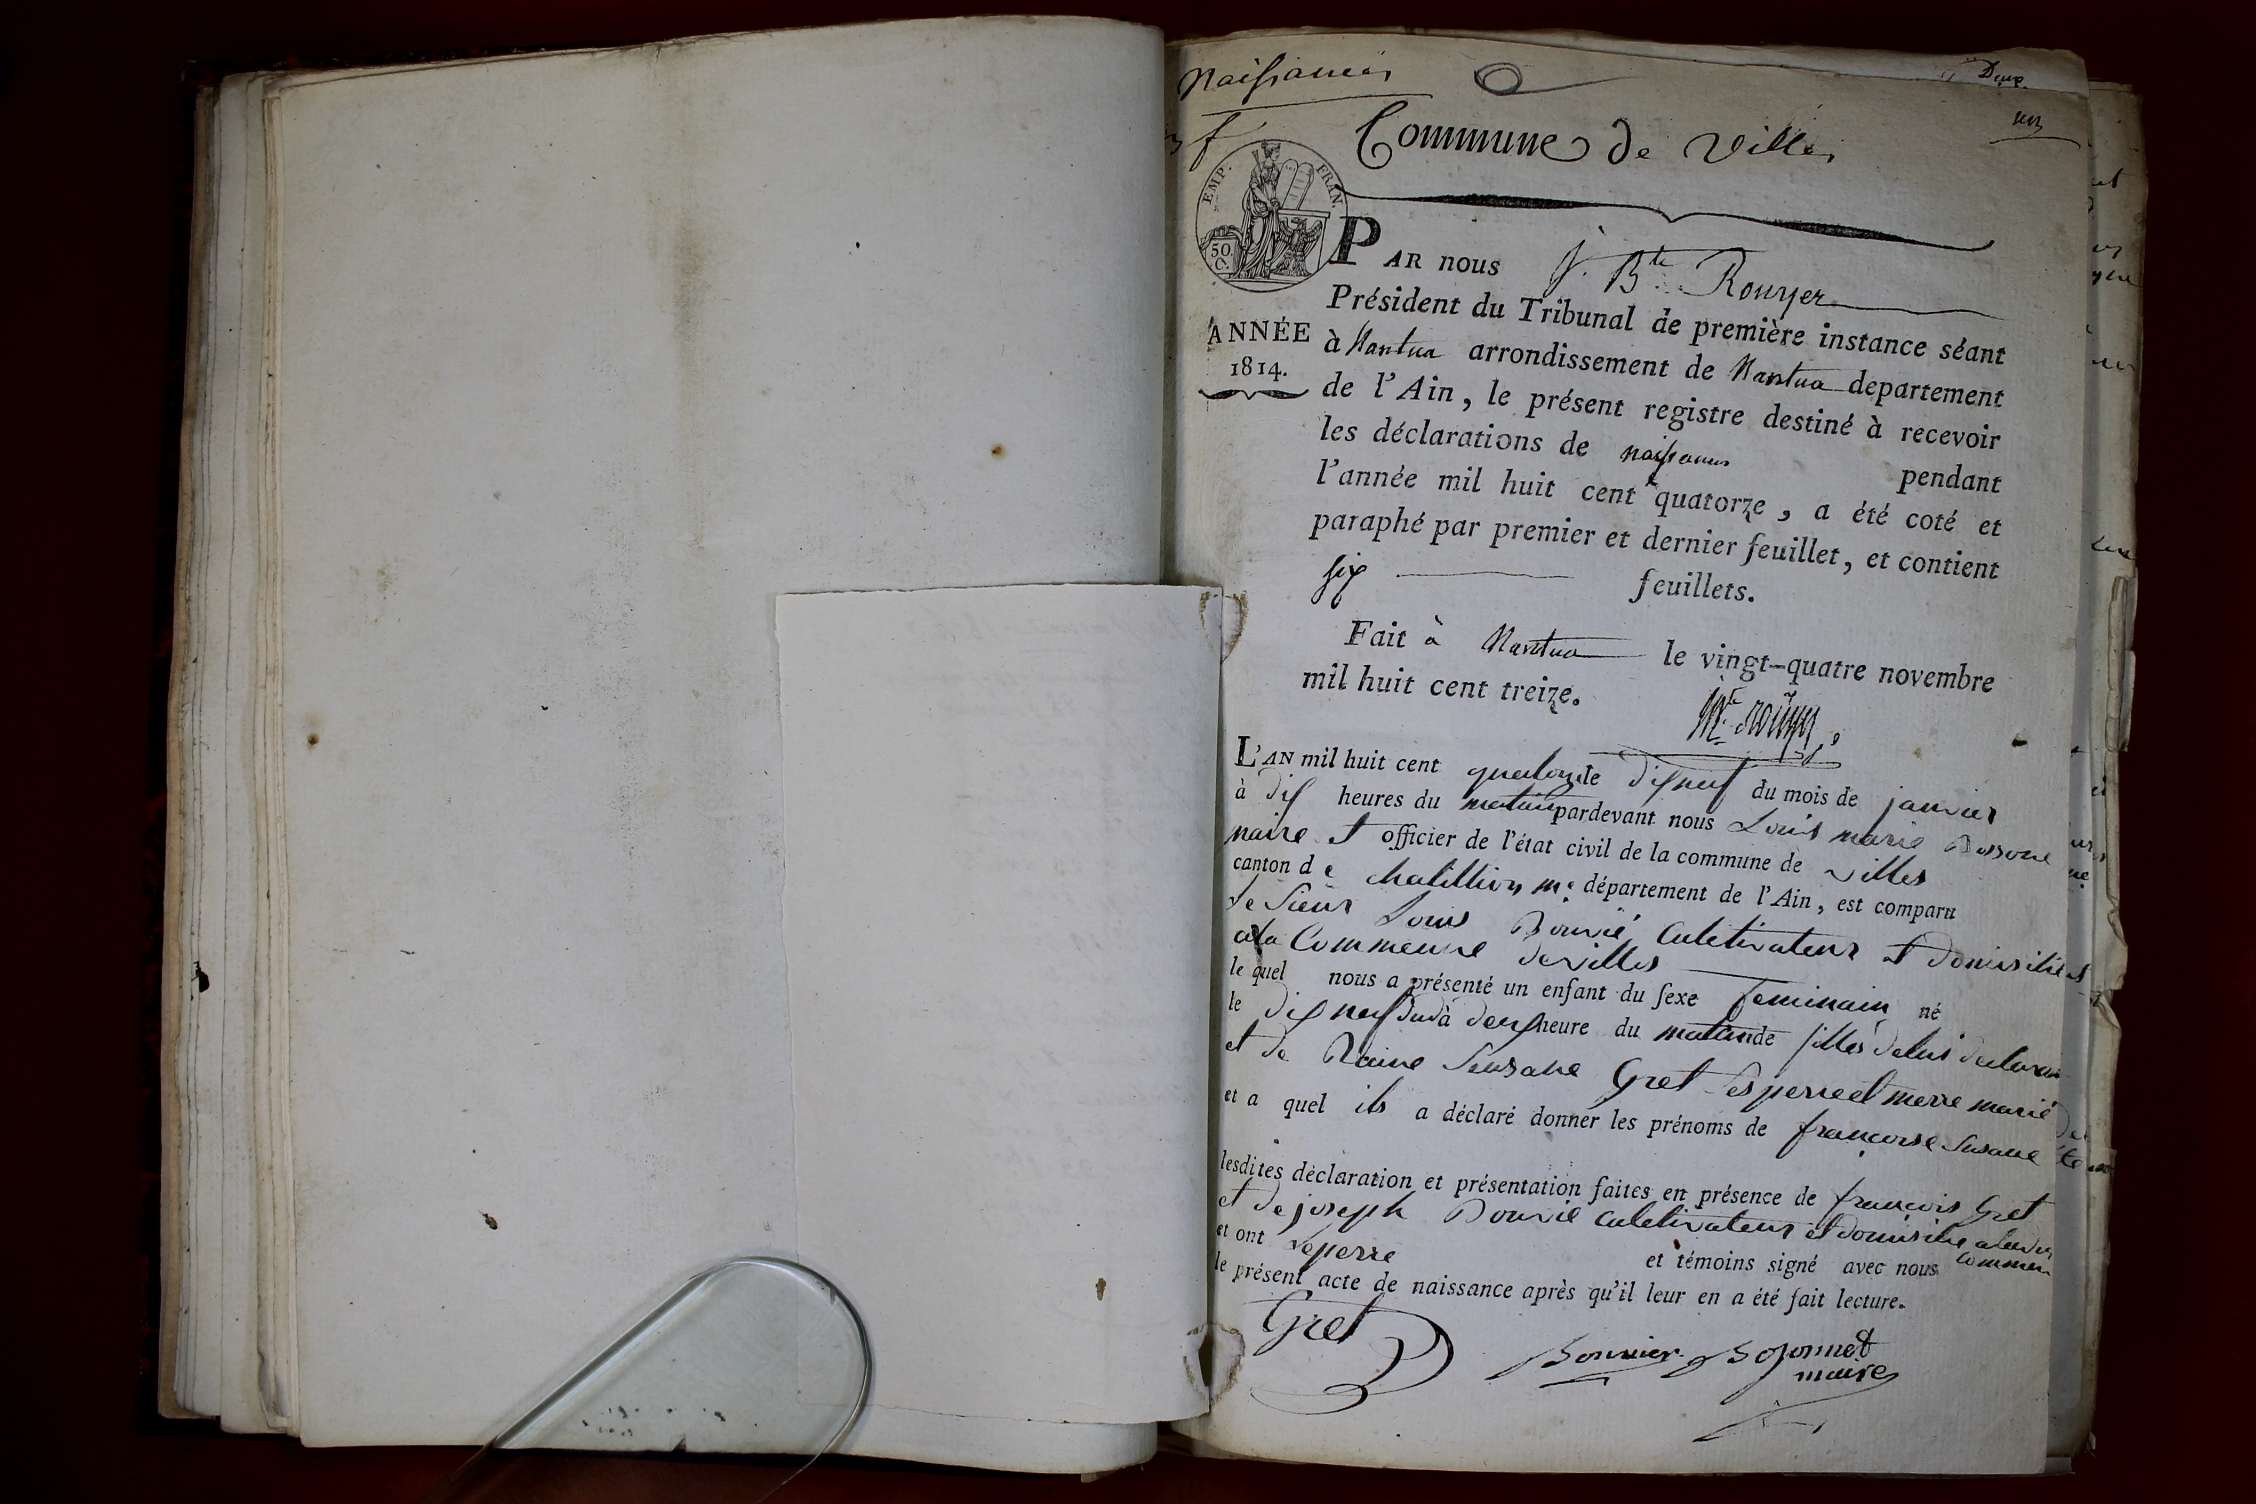 Naissances
Commune de Villes
un
EMP. FRAN.
50.
C.
PAR nous J. Bte Rouyer
Président du Tribunal de première instance séant
ANNÉE
1814.
à Nantua arrondissement de Nantua departement
de l'Ain, le présent registre destiné à recevoir
les déclarations de naissances pendant
l'année mil huit cent quatorze, a été coté et
paraphé par premier et dernier feuillet, et contient
six feuillets.
Fait à Nantua le vingt-quatre novembre
mil huit cent treize.
L'AN mil huit cent quatorze le dixneuf du mois de janvier
à dix heures du matin pardevant nous Louis marie
maire et officier de l'état civil de la commune de villes
canton de chatillion me département de l'Ain, est comparu
le sieur Louis Bouvié cultivateur et domisilié
a la Commeune de villes
lequel nous a présenté un enfant du sexe feminain né
le dixneuf du dà deux heure du matin de filles de lui declaran
et de Raine Sensane Gret ses perre et merre marié
et a quel ils a déclaré donner les prénoms de françoise Susane
lesdites déclaration et présentation faites en présence de françois Gret
et de joseph Bouvié cultivateur et domisilié
commeu
et ont le perre et témoins signé avec nous
le présent acte de naissance après qu'il leur en a été fait lecture.
Gret
Bouvier
maire